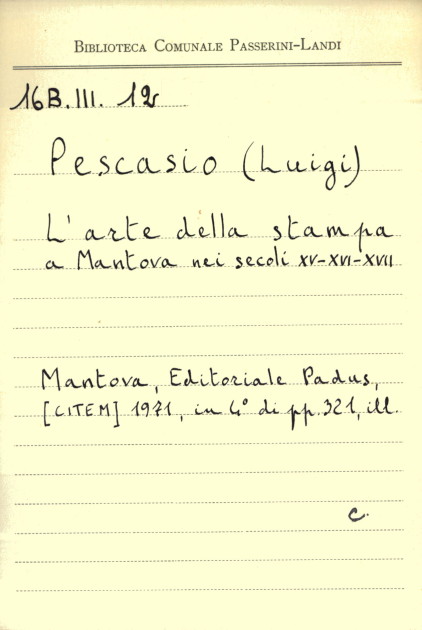 Biblioteca Comunale Passerini-Landi
16B.III. 12
Pescasio (Luigi)
L'arte della stampa
a Mantova nei secoli XV-XVI-XVII
Mantova, Editoriale Padus,
[CITEM] 1971, in 4° di pp. 321, ill.
C.